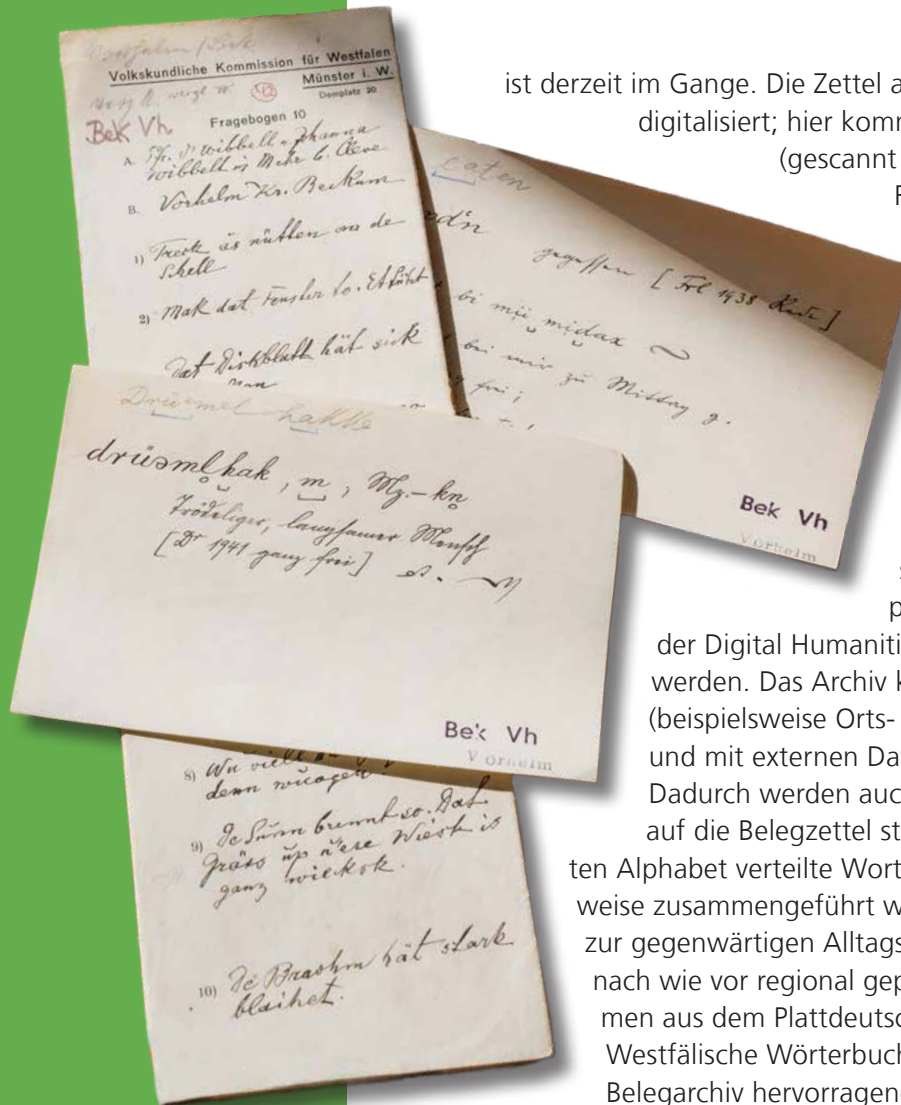 Volkskundliche Kommission für Westfalen
Münster i. W.
Domplatz 20
Bek Vh
Fragebogen 10
A. wibbelt Johanna
wibbelt in Mehr b. Cleve
B. Vorhelm Kr. Beckum
1) Treck de
Schell
2) Mak dat Fenster to. Et
dat hät sick
eaten
gegessen [Frl 1938 ]
bi mii midax
bei mir zu Mittag g.
frei;
Bek Vh
Vorhelm
Drüemel hakke
drüəml̥hak, m, Mz.-kn̥
Trödeliger, langsamer Mensch
[Dr 1941 ganz frei]
Bek Vh
Vorhelm
8) Wu viell
denn wuogen?
9) De Sunn brennt so. Dat
Gräss up Wiesk is
ganz
10) De Braohm hät stark
blaihet.
ist derzeit im Gange. Die Zettel a
digitalisiert; hier komm
(gescannt
F
s
p
der Digital Humaniti
werden. Das Archiv k
(beispielsweise Orts-
und mit externen Da
Dadurch werden auc
auf die Belegzettel st
ten Alphabet verteilte Wort
weise zusammengeführt w
zur gegenwärtigen Alltags
nach wie vor regional gep
men aus dem Plattdeutsc
Westfälische Wörterbuch
Belegarchiv hervorragend